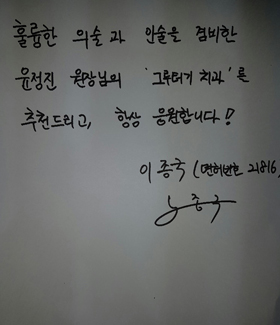 훌륭한 의술과 인술을 겸비한
윤정진 원장님의 '그루터기 치과'를
추천드리고, 항상 응원합니다!
이종국 (면허번호 21816)
이종국